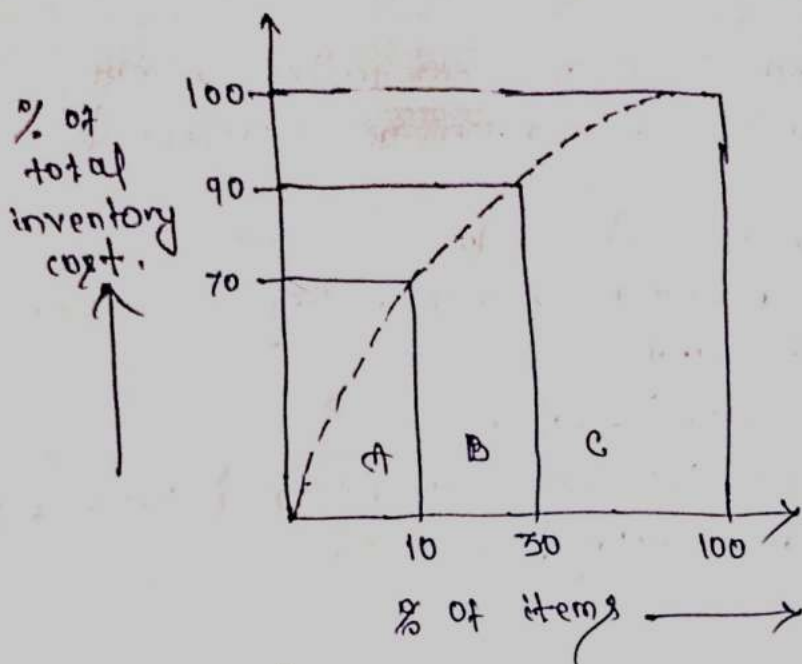 % of
total
inventory
cost.
100
90
70
A B C
10 30 100
% of items